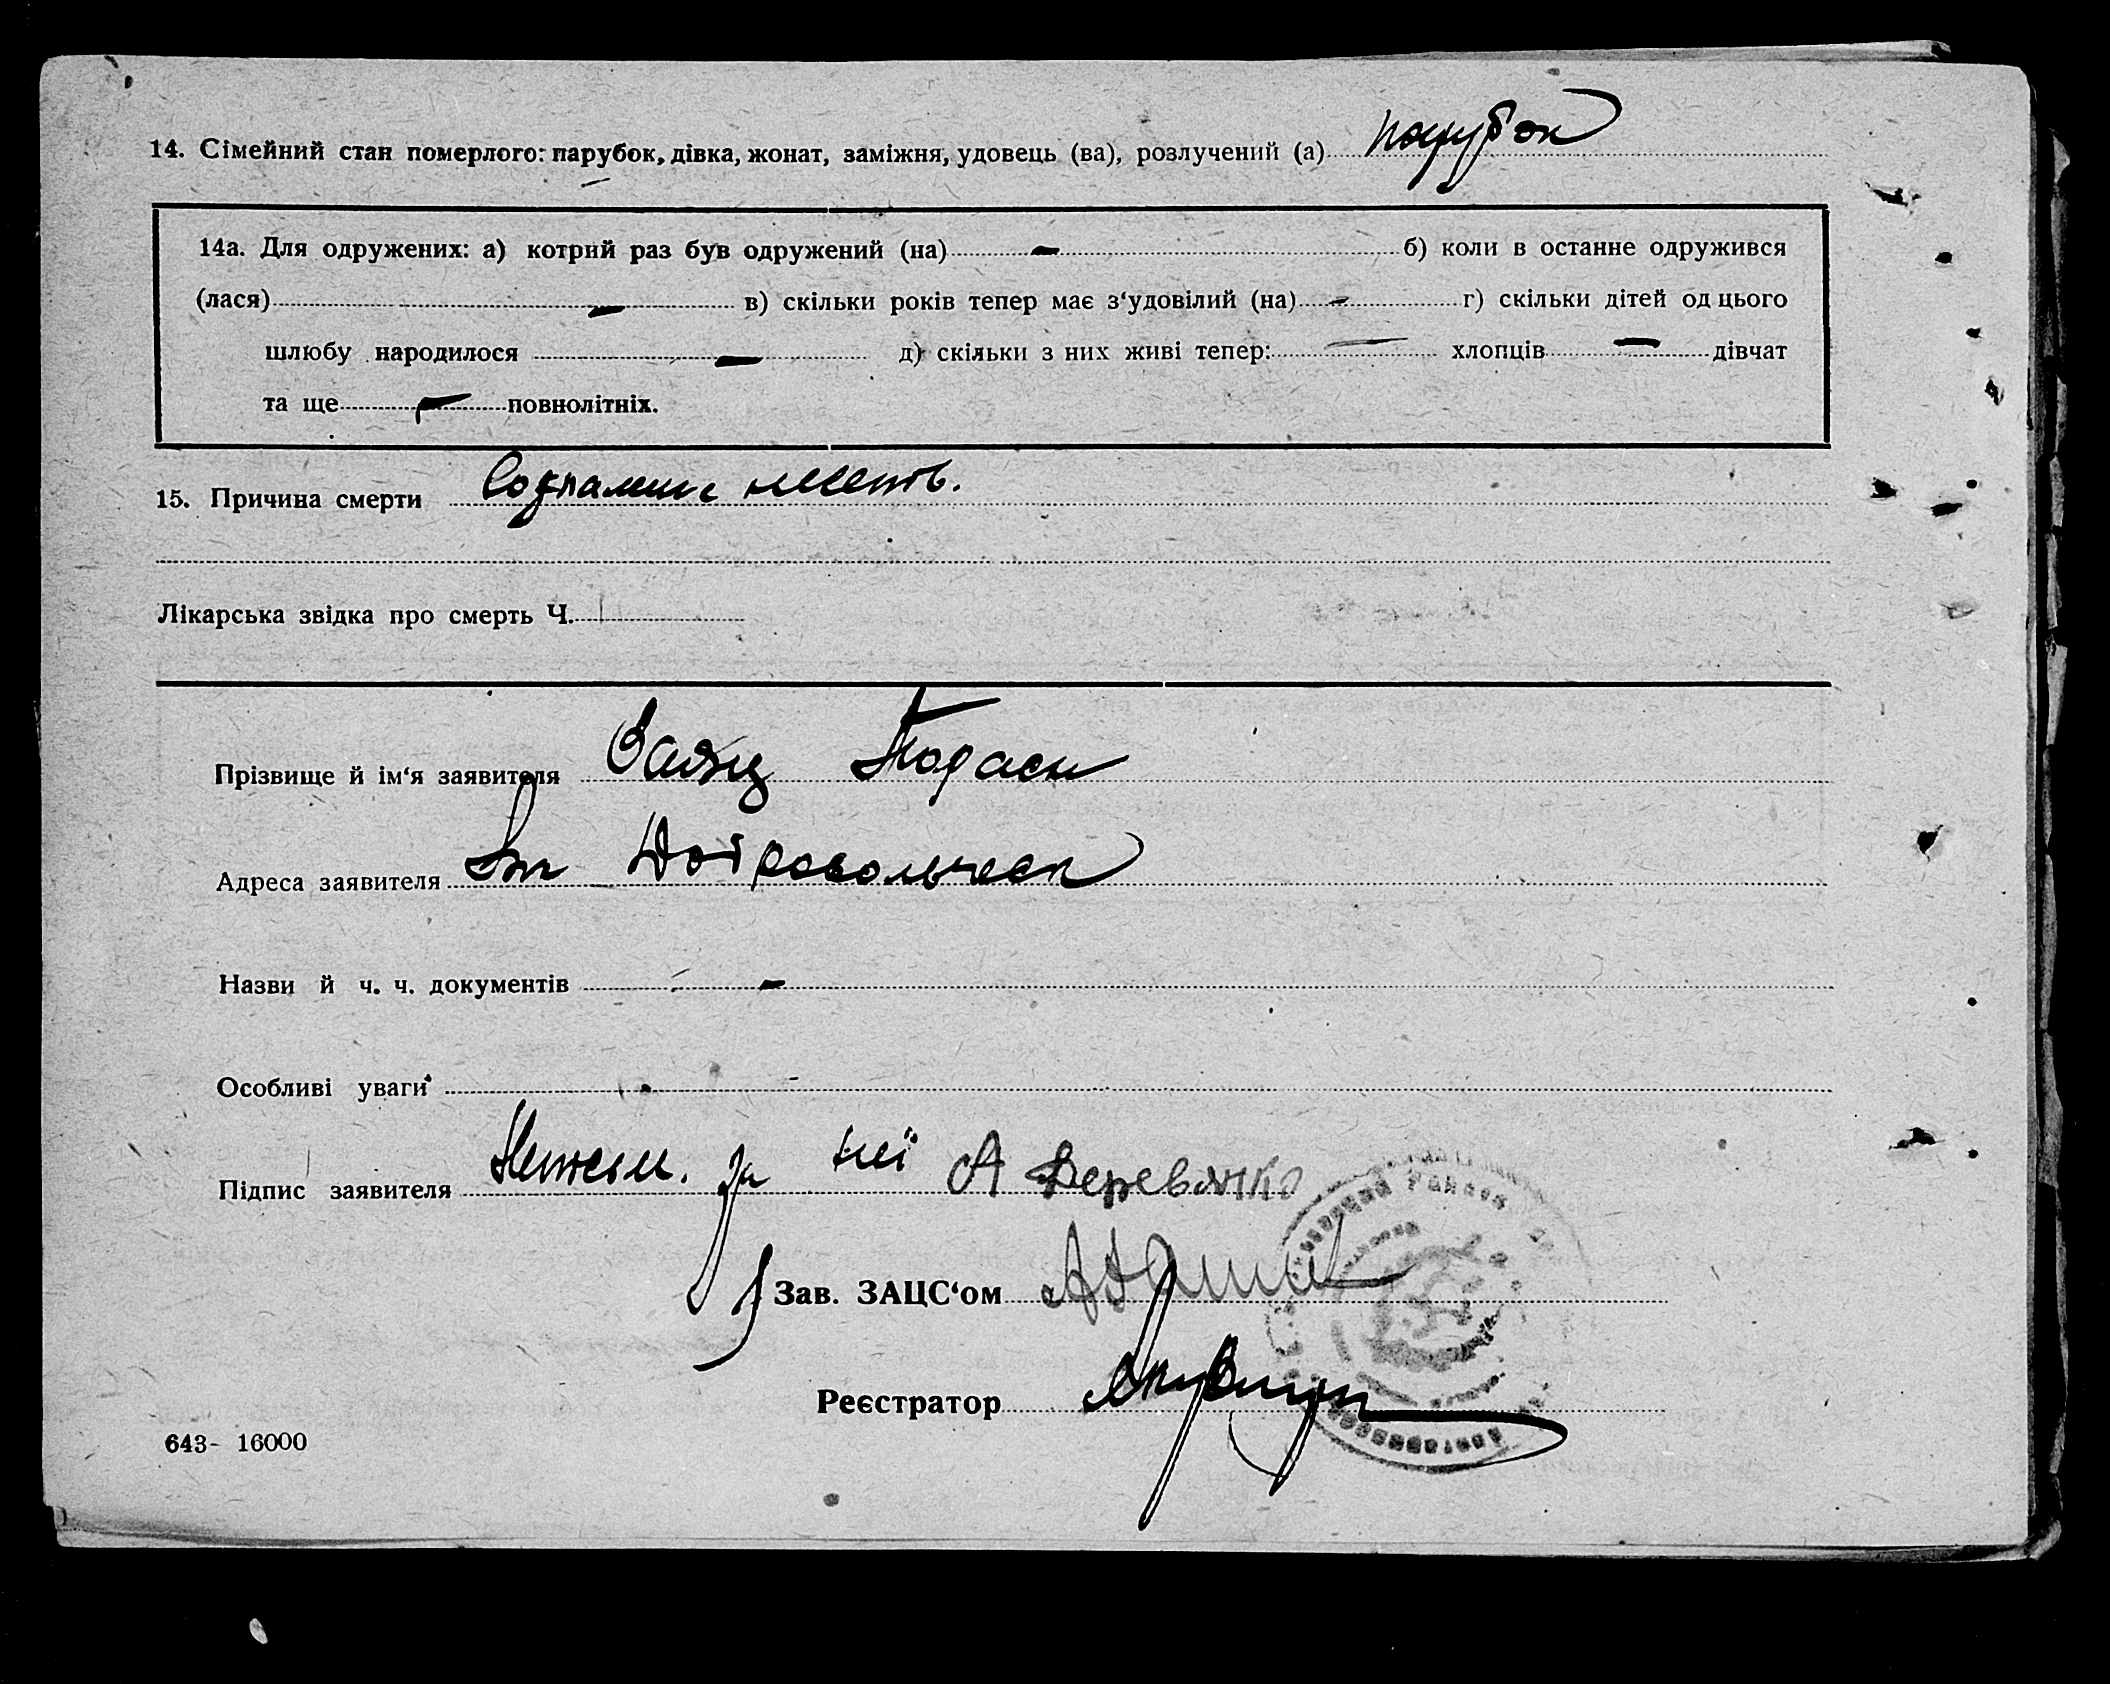 14. Сімейний стан померлого: парубок, дівка, жонат, заміжня, удовець (ва), розлучений (а) парубок
14а. Для одружених: а) котрий раз був одружений (на) - б) коли в останне одружився
(лася) - в) скільки років тепер має з‘удовілий (на) - г) скільки дітей од цього
шлюбу народилося - д) скільки з них живі тепер: - хлопців - дівчат
та ще - повнолітніх.
15. Причина смерти
Лікарська звідка про смерть Ч.
Прізвище й ім‘я заявителя Заяц
Адреса заявителя
Назви й ч. ч. документів -
Особливі уваги -
Підпис заявителя за неї А Деревянко
Зав. ЗАЦС‘ом
Реєстратор
643- 16000